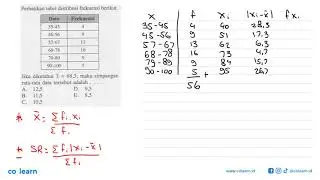 Perhatikan tabel distribusi frekuensi berikut.
Data Frekuensi
35-45 4
46-56 9
57-67 13
68-78 16
79-89 9
90-100 5
Jika diketahui x̄ = 68,3, maka simpangan
rata-rata data tersebut adalah ....
A. 12,5 D. 9,5
B. 11,5 E. 8,5
C. 10,5
* x̄ = Σ fi.xi / Σ fi
* SR = Σ fi |xi - x̄| / Σ fi
x f xi |xi - x̄| f xi
35-45 4 40 28,3
45-56 9 51 17,3
57-67 13 62 6,3
68-78 16 73 4,7
79-89 9 84 15,7
90-100 5 95 26,7
+
56
co learn
www.colearn.id